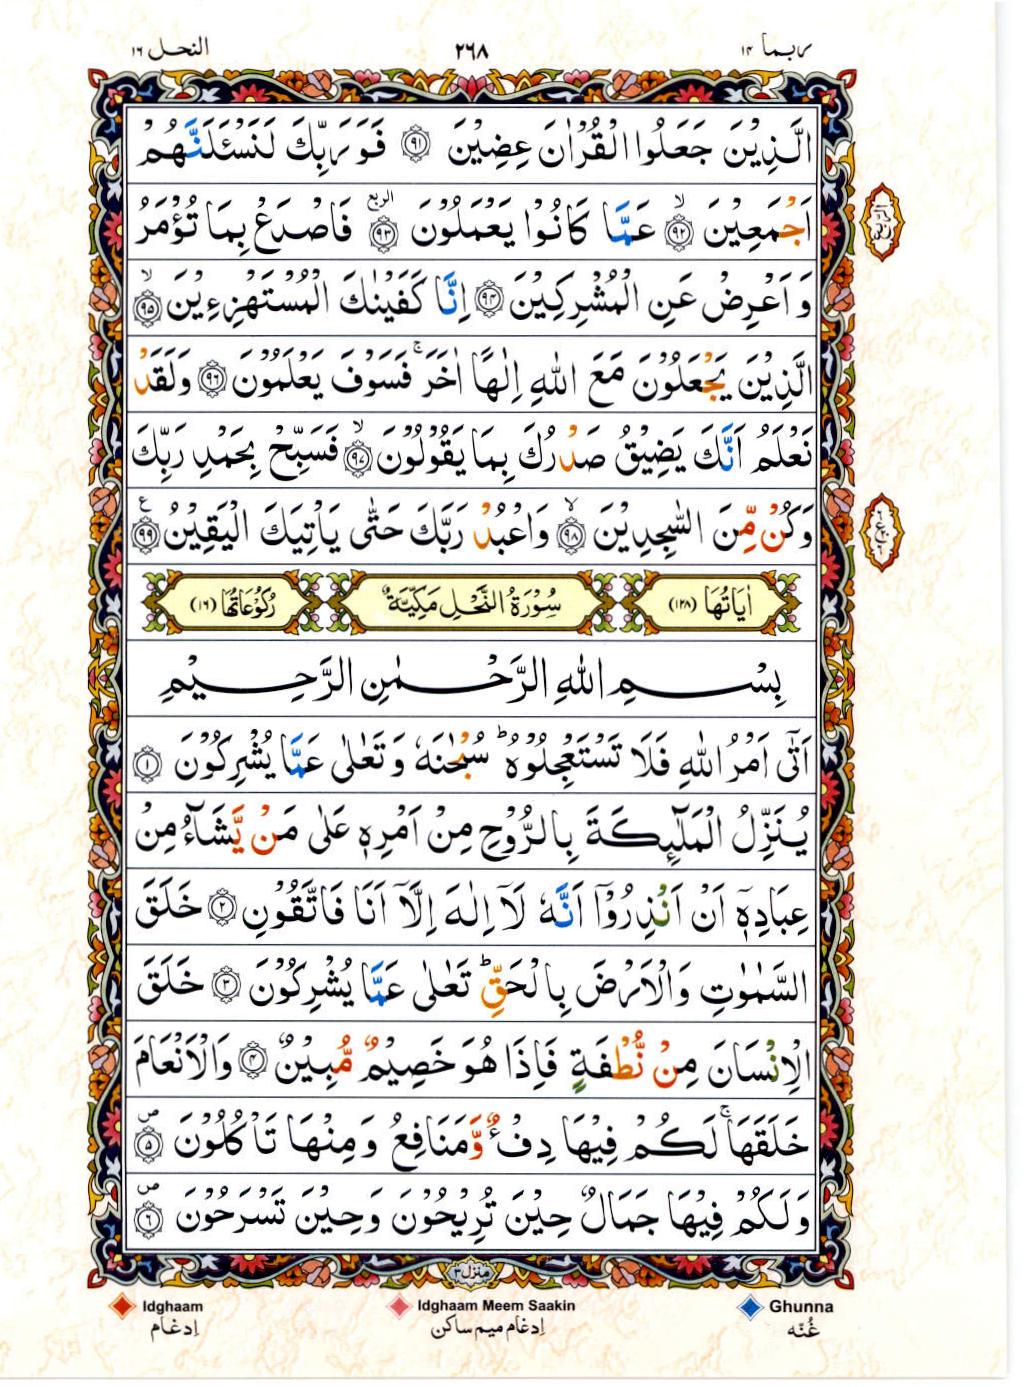 ربما ١٤ ٢٦٨ النحل ١٦
الَّذِيْنَ جَعَلُوا الْقُرْاٰنَ عِضِيْنَ ﴿٩١﴾ فَوَرَبِّكَ لَنَسْـَٔلَنَّهُمْ
اَجْمَعِيْنَ ﴿٩٢﴾ۙ عَمَّا كَانُوْا يَعْمَلُوْنَ ﴿٩٣﴾ الربع فَاصْدَعْ بِمَا تُؤْمَرُ
وَاَعْرِضْ عَنِ الْمُشْرِكِيْنَ ﴿٩٤﴾ اِنَّا كَفَيْنٰكَ الْمُسْتَهْزِءِيْنَ ﴿٩٥﴾ۙ
الَّذِيْنَ يَجْعَلُوْنَ مَعَ اللّٰهِ اِلٰهًا اٰخَرَ ۚ فَسَوْفَ يَعْلَمُوْنَ ﴿٩٦﴾ وَلَقَدْ
نَعْلَمُ اَنَّكَ يَضِيْقُ صَدْرُكَ بِمَا يَقُوْلُوْنَ ﴿٩٧﴾ۙ فَسَبِّحْ بِحَمْدِ رَبِّكَ
وَكُنْ مِّنَ السّٰجِدِيْنَ ﴿٩٨﴾ۙ وَاعْبُدْ رَبَّكَ حَتّٰى يَاْتِيَكَ الْيَقِيْنُ ﴿٩٩﴾ ع
اٰيَاتُهَا (١٢٨) سُوْرَةُ النَّحْلِ مَكِّيَّةٌ رُكُوْعَاتُهَا (١٦)
بِسْمِ اللّٰهِ الرَّحْمٰنِ الرَّحِيْمِ
اَتٰٓى اَمْرُ اللّٰهِ فَلَا تَسْتَعْجِلُوْهُ ؕ سُبْحٰنَهٗ وَتَعٰلٰى عَمَّا يُشْرِكُوْنَ ﴿١﴾
يُنَزِّلُ الْمَلٰٓئِكَةَ بِالرُّوْحِ مِنْ اَمْرِهٖ عَلٰى مَنْ يَّشَآءُ مِنْ
عِبَادِهٖٓ اَنْ اَنْذِرُوْٓا اَنَّهٗ لَآ اِلٰهَ اِلَّآ اَنَا فَاتَّقُوْنِ ﴿٢﴾ خَلَقَ
السَّمٰوٰتِ وَالْاَرْضَ بِالْحَقِّ ؕ تَعٰلٰى عَمَّا يُشْرِكُوْنَ ﴿٣﴾ خَلَقَ
الْاِنْسَانَ مِنْ نُّطْفَةٍ فَاِذَا هُوَ خَصِيْمٌ مُّبِيْنٌ ﴿٤﴾ وَالْاَنْعَامَ
خَلَقَهَا ۚ لَكُمْ فِيْهَا دِفْءٌ وَّمَنَافِعُ وَمِنْهَا تَاْكُلُوْنَ ﴿٥﴾ۖ
وَلَكُمْ فِيْهَا جَمَالٌ حِيْنَ تُرِيْحُوْنَ وَحِيْنَ تَسْرَحُوْنَ ﴿٦﴾ۖ
منزل ٣
Idghaam Idghaam Meem Saakin Ghunna
اِدغام اِدغام میم ساکن غُنّه